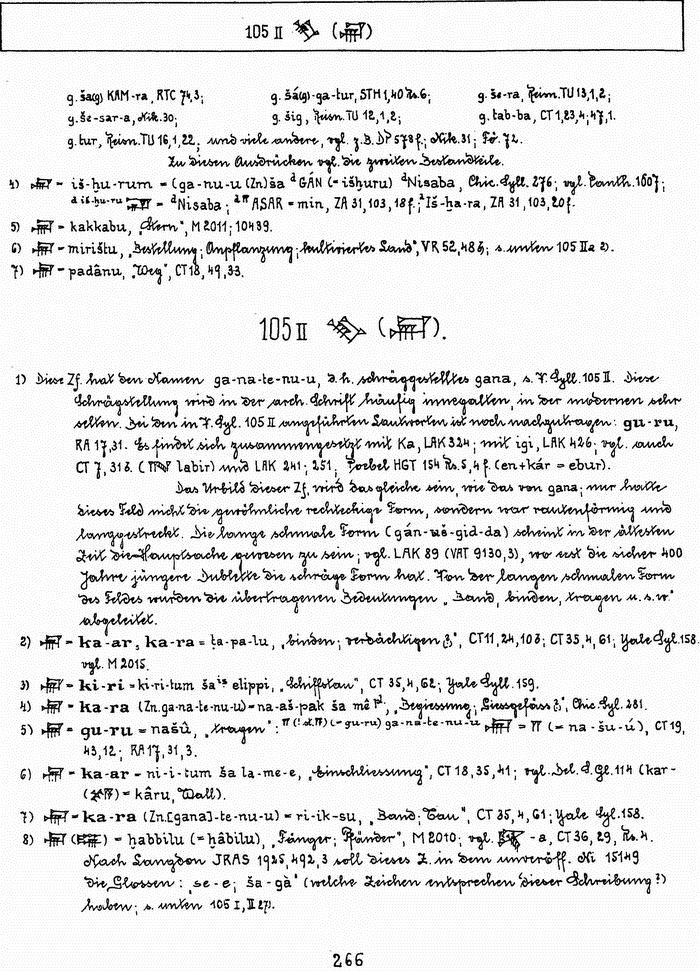 105 II 𒃷 (𒃷)
g. ša(g) KAM-ra, RTC 74,3; g. šá(g)-ga-tur, STH 1,40 Rs. 6; g. še-ra, Reisn. TU 13,1,2;
g. še-sar-a, Nik. 30; g. šig, Reisn. TU 12,1,2; g. tab-ba, CT 1,23,4; 47,1.
g. tur, Reisn. TU 16,1,22; und viele andere, vgl. z.B. DP 578 f.; Nik. 31; Fö. 72.
Zu diesen Ausdrücken vgl. die zweiten Bestandteile.
4) = iš-ḫu-rum = (ga-nu-u (Zn) ša ᵈGÁN (= išḫuru) ᵈNisaba, Chic. Syll. 276; vgl. Panth. 1607;
ᵈ iš-ḫu-ru = ᵈNisaba; AŠAR = min, ZA 31,103,18 f.; Iš-ḫa-ra, ZA 31,103,20 f.
5) = kakkabu, „Stern", M 2011; 10439.
6) = mirištu, „Bestellung; Anpflanzung; kultiviertes Land", VR 52,48 b; s. unten 105 IIa 2).
7) = padânu, „Weg", CT 18,49,33.
105 II ( ).
1) Diese Zf. hat den Namen ga-na-te-nu-u, d.h. schräggestelltes gana, s. F. Syll. 105 II. Diese
Schrägstellung wird in der arch. Schrift häufig innegalten, in der modernen sehr
selten. Bei den in F. Syl. 105 II angeführten Lautwerten ist noch nachzutragen: gu-ru,
RA 17,31. Es findet sich zusammengesetzt mit Ka, LAK 324; mit igi, LAK 426; vgl. auch
CT 7,31 b. ( labir) und LAK 241; 251; Poebel HGT 154 Rs. 5,4 f. (en+kár = ebur).
Das Urbild dieser Zf. wird das gleiche sein, wie das von gana; nur hatte
dieses Feld nicht die gewöhnliche rechteckige Form, sondern war rautenförmig und
langgestreckt. Die lange schmale Form (gán-uš-gid-da) scheint in der ältesten
Zeit die Hauptsache gewesen zu sein; vgl. LAK 89 (VAT 9130,3), wo erst die sicher 400
Jahre jüngere Dublette die schräge Form hat. Von der langen schmalen Form
des Feldes wurden die übertragenen Bedeutungen „Band, binden, tragen u.s.w."
abgeleitet.
2) = ka-ar, ka-ra = ṭa-pa-lu, „binden; verdächtigen", CT 11,24,10 b; CT 35,4,61; Yale Syl. 158.
vgl. M 2015.
3) = ki-ri = ki-ri-tum ša elippi, „Schiffstau", CT 35,4,62; Yale Syll. 159.
4) = ka-ra (Zn. ga-na-te-nu-u) = na-aš-pak ša mê, „Begiessung; Giessgefäss", Chic. Syl. 281.
5) = gu-ru = našû, „tragen": (= gu-ru) ga-na-te-nu-u = (= na-šu-ú), CT 19,
43,12; RA 17,31,3.
6) = ka-ar = ni-i-tum ša la-me-e, „Einschliessung", CT 18,35,41; vgl. Del. S.Gl. 114 (kar-
( ) = kâru, Wall).
7) = ka-ra (Zn. [gana]-te-nu-u) = ri-ik-su, „Band; Tau", CT 35,4,61; Yale Syl. 158.
8) ( ) = ḫabbilu (= ḫâbilu), „Fänger; Pfänder", M 2010; vgl. -a, CT 36,29, Rs. 4.
Nach Langdon JRAS 1925,492,3 soll dieses Z. in dem unveröff. Ni 15149
die Glossen: se-e; ša-gà (welche Zeichen entsprechen dieser Schreibung?)
haben; s. unten 105 I, II 27).
266